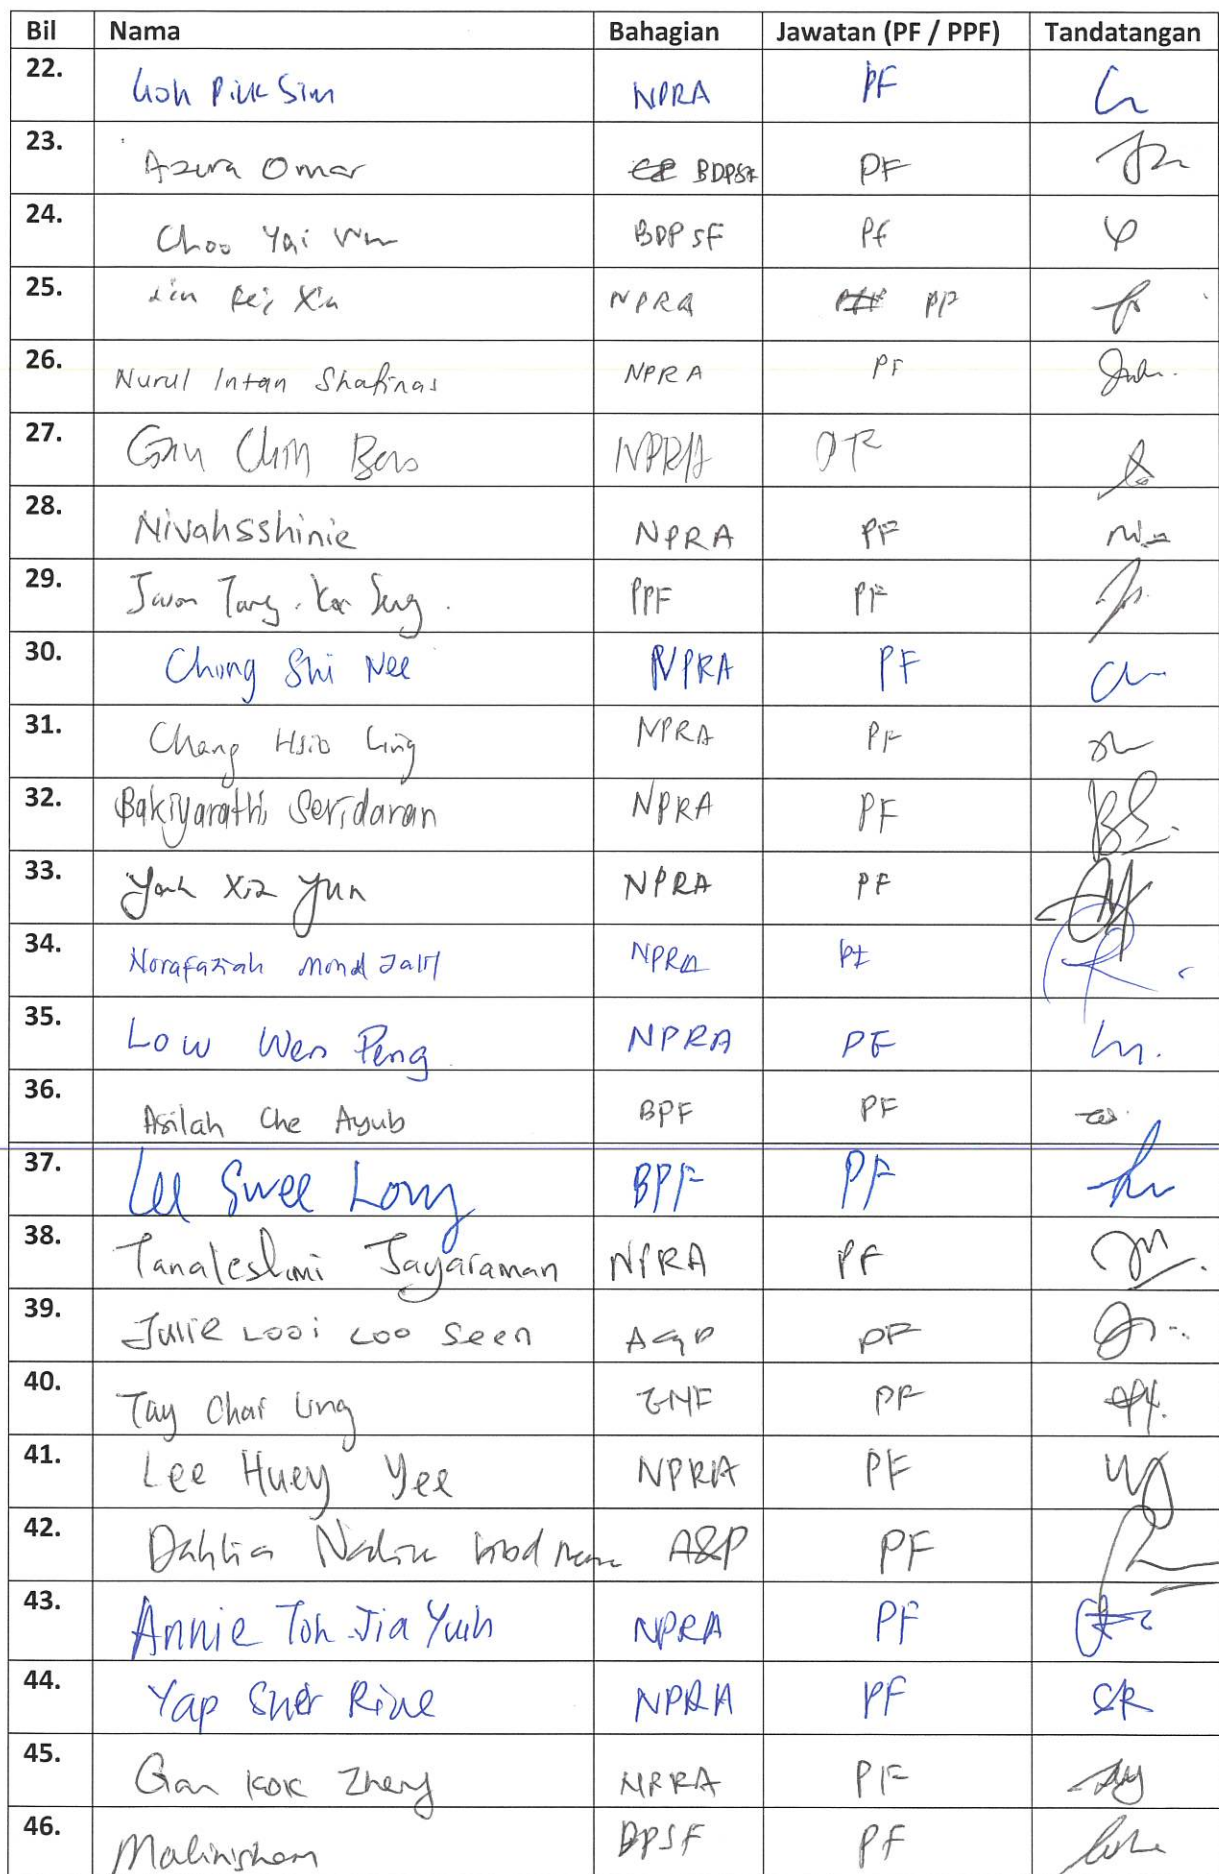 Bil Nama Bahagian Jawatan (PF / PPF) Tandatangan
22. Goh Pick Sim NPRA PF
23. Azura Omar BDPSF PF
24. Choo Yai Wun BDPSF PF
25. Lim Pei Xin NPRA PF
26. Nurul Intan Shafinas NPRA PF
27. Gan Chin Beng NPRA
28. Nivahsshinie NPRA PF
29. Jason Tang Kar Seng PPF PF
30. Chong Shi Nee NPRA PF
31. Chang Hsio Ling NPRA PF
32. Bakiyarathi Seridaran NPRA PF
33. Yong Xiz Yun NPRA PF
34. Norafaziah Mohd Jalil NPRA PF
35. Low Wen Peng NPRA PF
36. Asilah Che Ayub BPF PF
37. Lee Swee Long BPF PF
38. Tanaleshmi Jayaraman NPRA PF
39. Julie Looi Loo Seen PF
40. Tay Chai Ling PF
41. Lee Huey Yee NPRA PF
42. Dahlia A&P PF
43. Annie Toh Jia Yuih NPRA PF
44. Yap Sher Rine NPRA PF SR
45. Gan Kok Zheng NPRA PF
46. DPSF PF